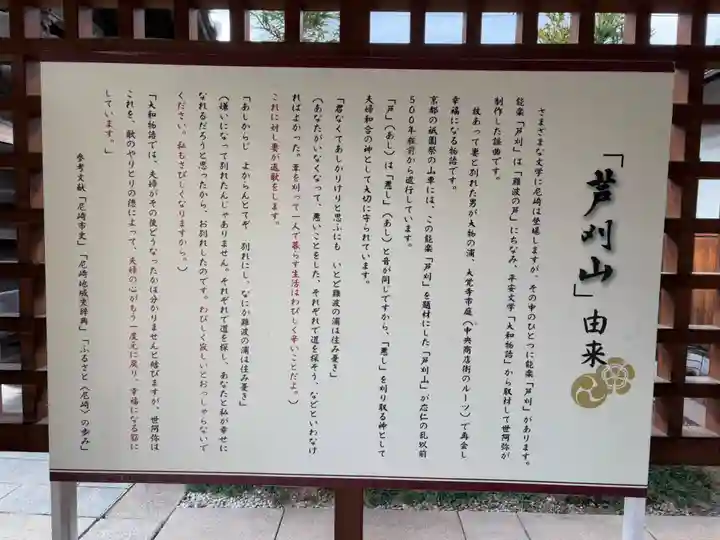 「芦刈山」由来
さまざまな文学に尼崎は登場しますが、その中のひとつに能楽「芦刈」があります。
能楽「芦刈」は「難波の芦」にちなみ、平安文学「大和物語」から取材して世阿弥が
制作した謡曲です。
故あって妻と別れた男が大物の浦、大覚寺市庭（中央商店街のルーツ）で再会し
幸福になる物語です。
京都の祇園祭の山車には、この能楽「芦刈」を題材にした「芦刈山」が応仁の乱以前
500年程前から巡行しています。
「芦」（あし）は「悪し」（あし）と音が同じですから、「悪し」を刈り取る神として
夫婦和合の神として大切に守られています。
「君なくてあしかりけりと思ふにも　いとど難波の浦は住み憂き」
（あなたがいなくなって、悪いことをした、それぞれで道を探そう、などといわなけ
ればよかった。葦を刈って一人で暮らす生活はわびしく辛いことだよ。）
これに対し妻が返歌をします。
「あしからじ　よからんとてぞ　別れにし、なにか難波の浦は住み憂き」
（嫌いになって別れたんじゃありません。それぞれで道を探し、あなたと私が幸せに
なれるだろうと思ったから、お別れしたのです。わびしく寂しいとおっしゃらないで
ください。私もさびしくなりますから。）
「大和物語では、夫婦がその後どうなったかは分かりませんと結びますが、世阿弥は
これを、歌のやりとりの徳によって、夫婦の心がもう一度元に戻り、幸福になる話に
しています。」
参考文献「尼崎市史」「尼崎地域史辞典」「ふるさと〈尼崎〉の歩み」